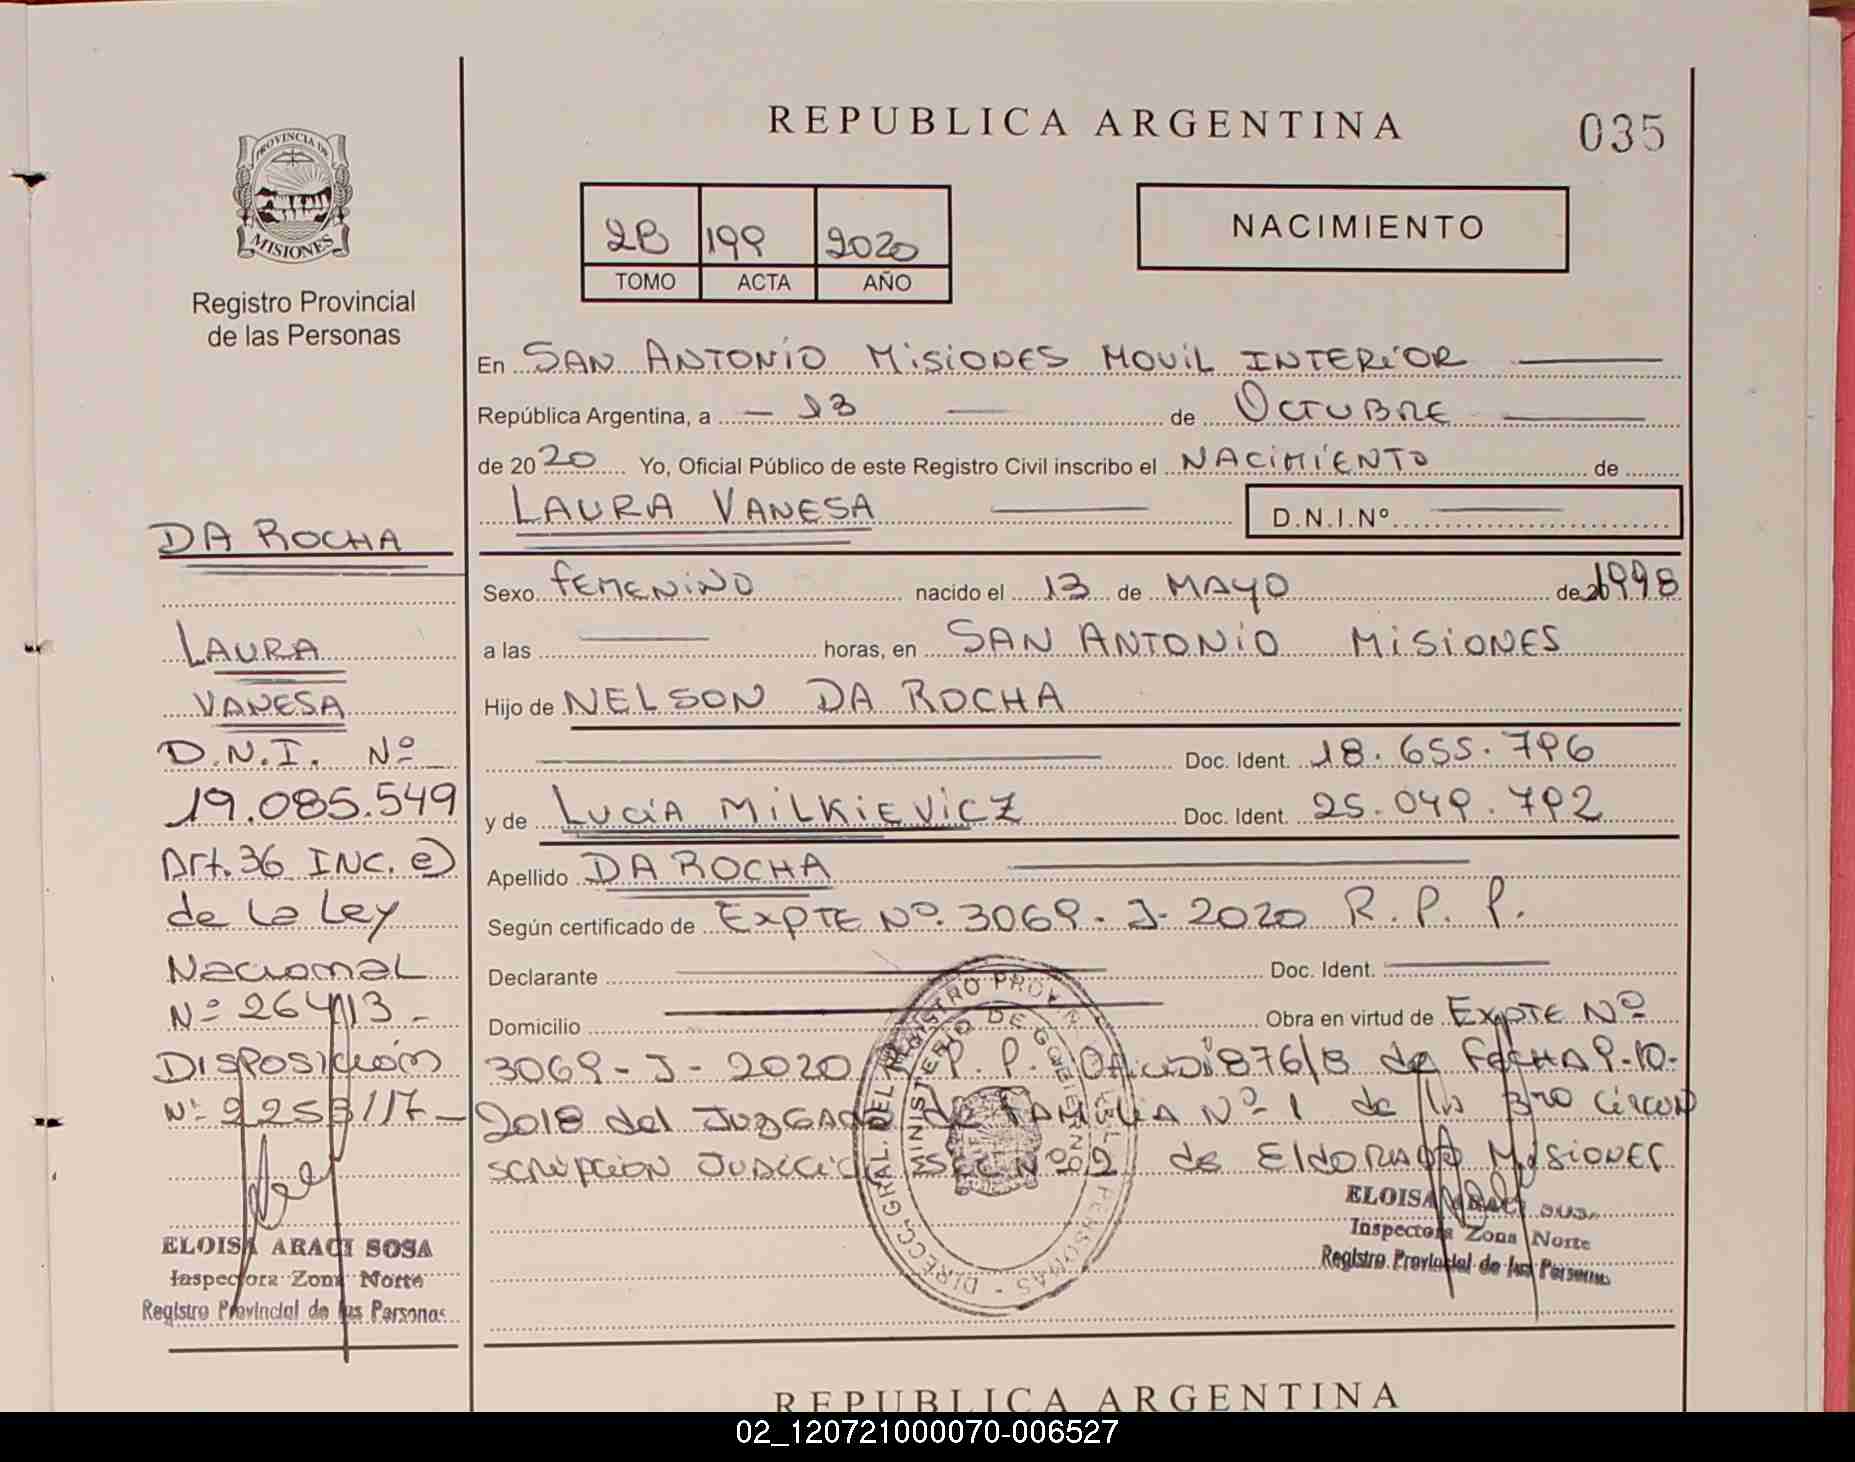 REPUBLICA ARGENTINA
035
PROVINCIA DE
MISIONES
Registro Provincial
de las Personas
2B 199 2020
TOMO ACTA AÑO
NACIMIENTO
En SAN ANTONIO MISIONES MOVIL INTERIOR
República Argentina, a 13 de OCTUBRE
de 2020 Yo, Oficial Público de este Registro Civil inscribo el NACIMIENTO de
LAURA VANESA D.N.I.Nº
Sexo FEMENINO nacido el 13 de MAYO de 1998
a las horas, en SAN ANTONIO MISIONES
Hijo de NELSON DA ROCHA
Doc. Ident. 18.655.796
y de LUCIA MILKIEVICZ Doc. Ident. 25.049.792
Apellido DA ROCHA
Según certificado de EXPTE Nº 3069-J-2020 R.P.P.
Declarante Doc. Ident.
Domicilio Obra en virtud de EXPTE Nº
3069-J-2020 R.P.P. OFICIO 876/18 de FECHA 9-10-
2018 del JUZGADO de FAMILIA Nº 1 de la 3ra CIRCUN
SCRIPCION JUDICIAL SEC Nº 2 de ELDORADO MISIONES
ELOISA ARACI SOSA
Inspectora Zona Norte
Registro Provincial de las Personas
DIRECC. GRAL. DEL REGISTRO PROV. DE LAS PERSONAS
MINISTERIO DE GOBIERNO
DA ROCHA
LAURA
VANESA
D.N.I. Nº
19.085.549
Art. 36 INC. e)
de la Ley
Nacional
Nº 26413-
DISPOSICIÓN
Nº 2253/17-
ELOISA ARACI SOSA
Inspectora Zona Norte
Registro Provincial de las Personas
REPUBLICA ARGENTINA
02_120721000070-006527